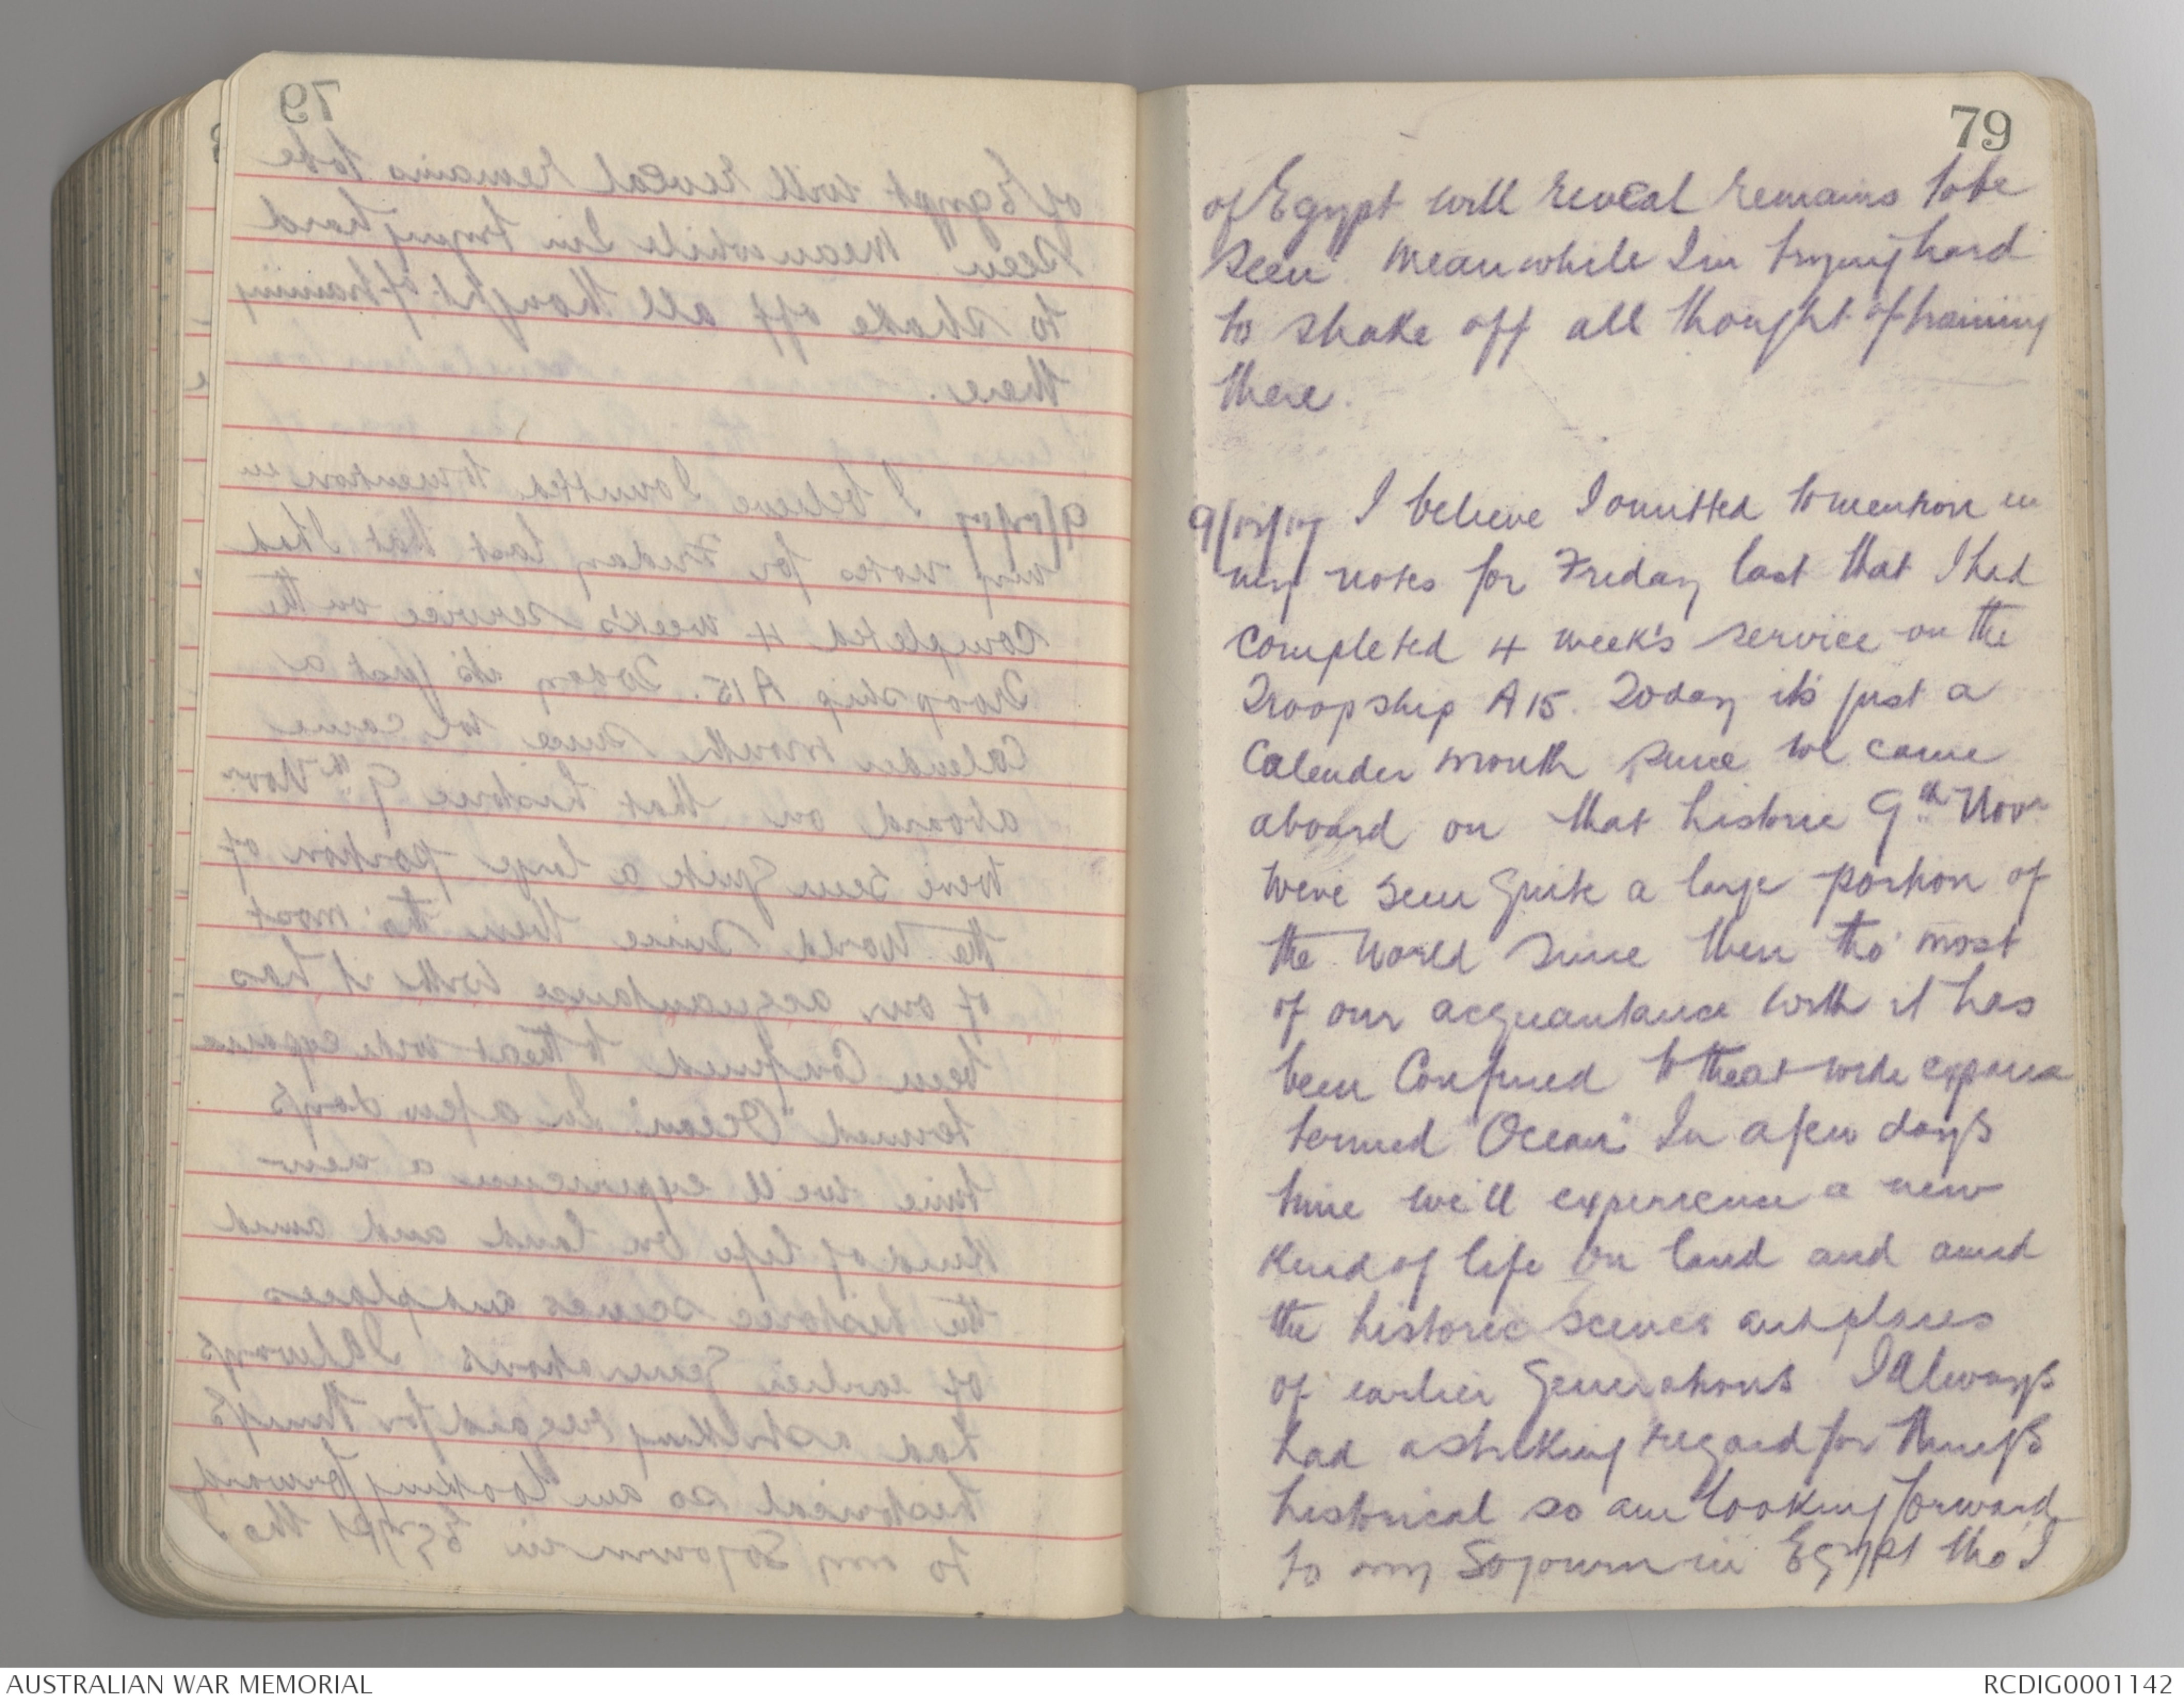 79
of Egypt will reveal remains to be
seen. Meanwhile I'm trying hard
to shake off all thought of training
there.
9/12/17 I believe I omitted to mention in
my notes for Friday last that I had
completed 4 week's service on the
Troopship A15. Today it's just a
Calender month since we came
aboard on that historic 9th Novr
We've seen quite a large portion of
the World since then tho' most
of our acquantance with it has
been Confined to that wide expanse
termed "Ocean" In a few days
time we'll experience a new
kind of life on land and amid
the historic scenes and places
of earlier Generations I Always
had a striking regard for things
historical so am looking forward
to my Sojourn in Egypt tho I
AUSTRALIAN WAR MEMORIAL
RCDIG0001142